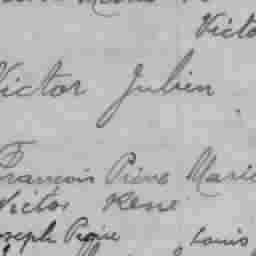 Victo
Victor Julien
François Pierre Marie
Victor René
Joseph Pierre Louis